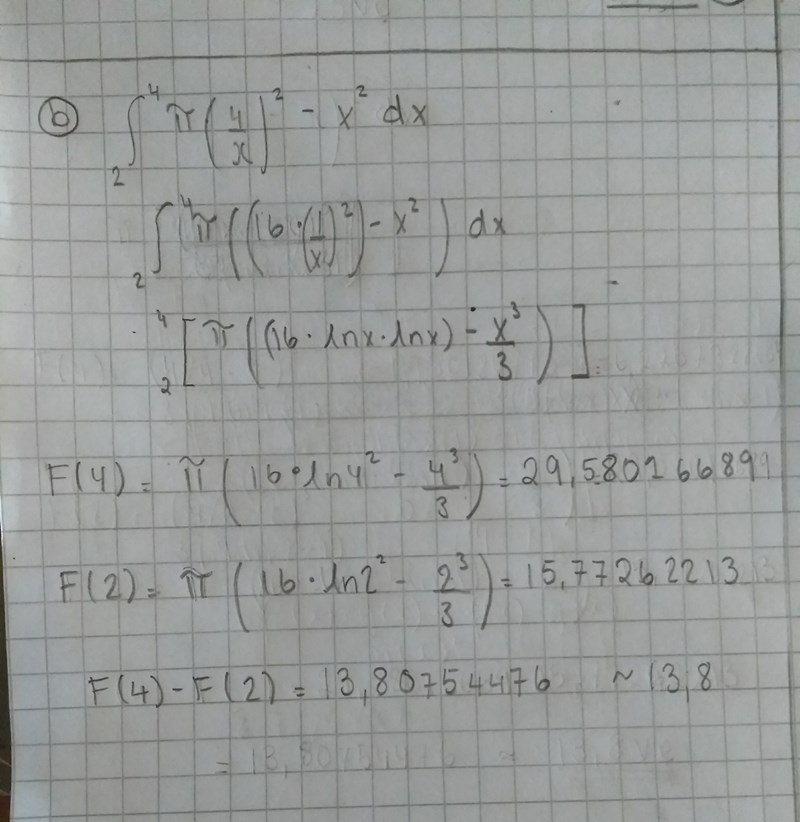 b ∫₂⁴ π(4/x)² - x² dx
∫₂⁴ π((16·(1/x)²) - x²) dx
₂⁴[π((16·lnx·lnx) - x³/3)]
F(4) = π(16·ln4² - 4³/3) = 29,5801668991
F(2) = π(16·ln2² - 2³/3) = 15,77262213
F(4)-F(2) = 13,80754476 ~ 13,8